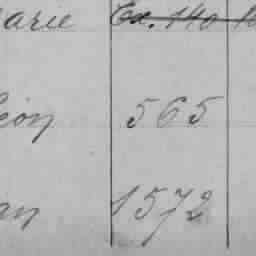 arie Ex. 140
éon 565
an 1572